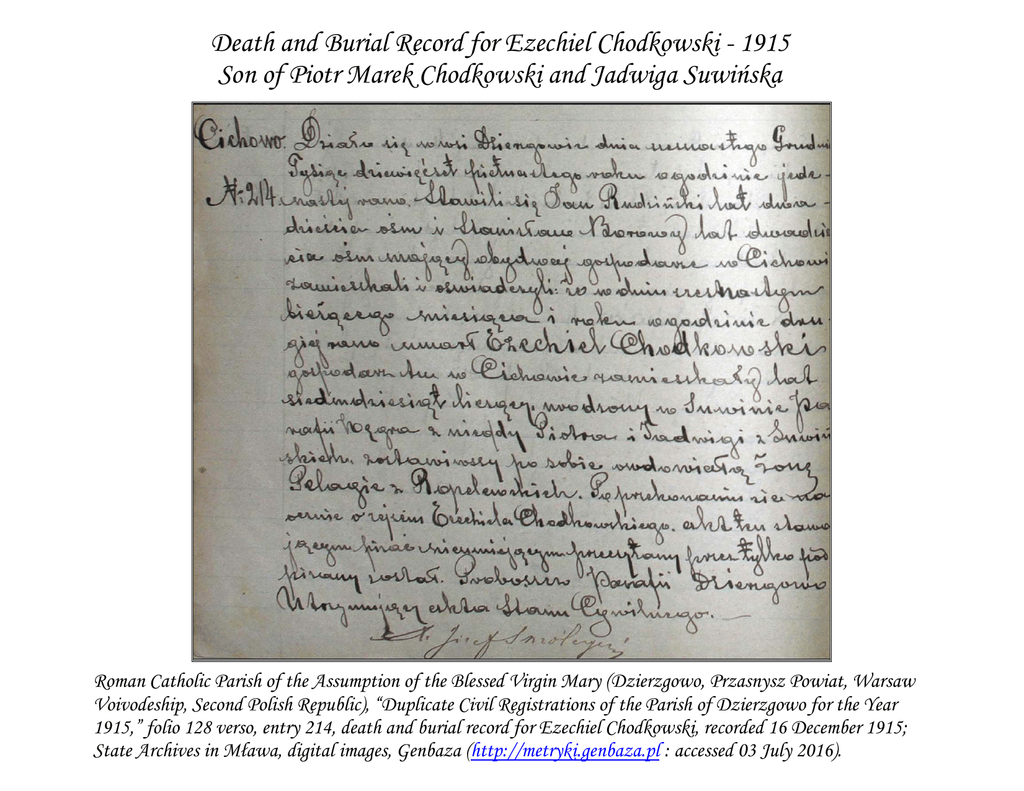 Death and Burial Record for Ezechiel Chodkowski - 1915
Son of Piotr Marek Chodkowski and Jadwiga Suwińska
Cichowo. Działo się w wsi Dziergowie dnia Grudni
Tysiąc dziewięćset piętnastego roku o godzinie jede-
№ 214 nastej rano. Stawili się Jan Rudziński lat dwa-
dzieścia ośm i Stanisław Borowy lat dwadzie
ścia ośm mający obydwaj gospodarze w Cichowi
zamieszkali i oświadczyli: że w dniu
bieżącego miesiąca i roku o godzinie dru
giej rano umarł Ezechiel Chodkowski
gospodarz tu w Cichowie zamieszkały lat
siedmdziesiąt liczący, urodzony w Suwinie Pa
rafii Węgra z niegdy Piotra i Jadwigi z Suwiń
skich. zostawiwszy po sobie owdowiałą żonę
Pelagię z Ropelewskich. Po przekonaniu się na
ocznie o zejściu Ezechiela Chodkowskiego. akt ten stawa
jącym pisać nieumiejącym przeczytany przez tylko pod
pisany został. Proboszcz Parafii Dziergowo
Utrzymujący akta Stanu Cywilnego.
Józef
Roman Catholic Parish of the Assumption of the Blessed Virgin Mary (Dzierzgowo, Przasnysz Powiat, Warsaw
Voivodeship, Second Polish Republic), “Duplicate Civil Registrations of the Parish of Dzierzgowo for the Year
1915,” folio 128 verso, entry 214, death and burial record for Ezechiel Chodkowski, recorded 16 December 1915;
State Archives in Mława, digital images, Genbaza (http://metryki.genbaza.pl : accessed 03 July 2016).